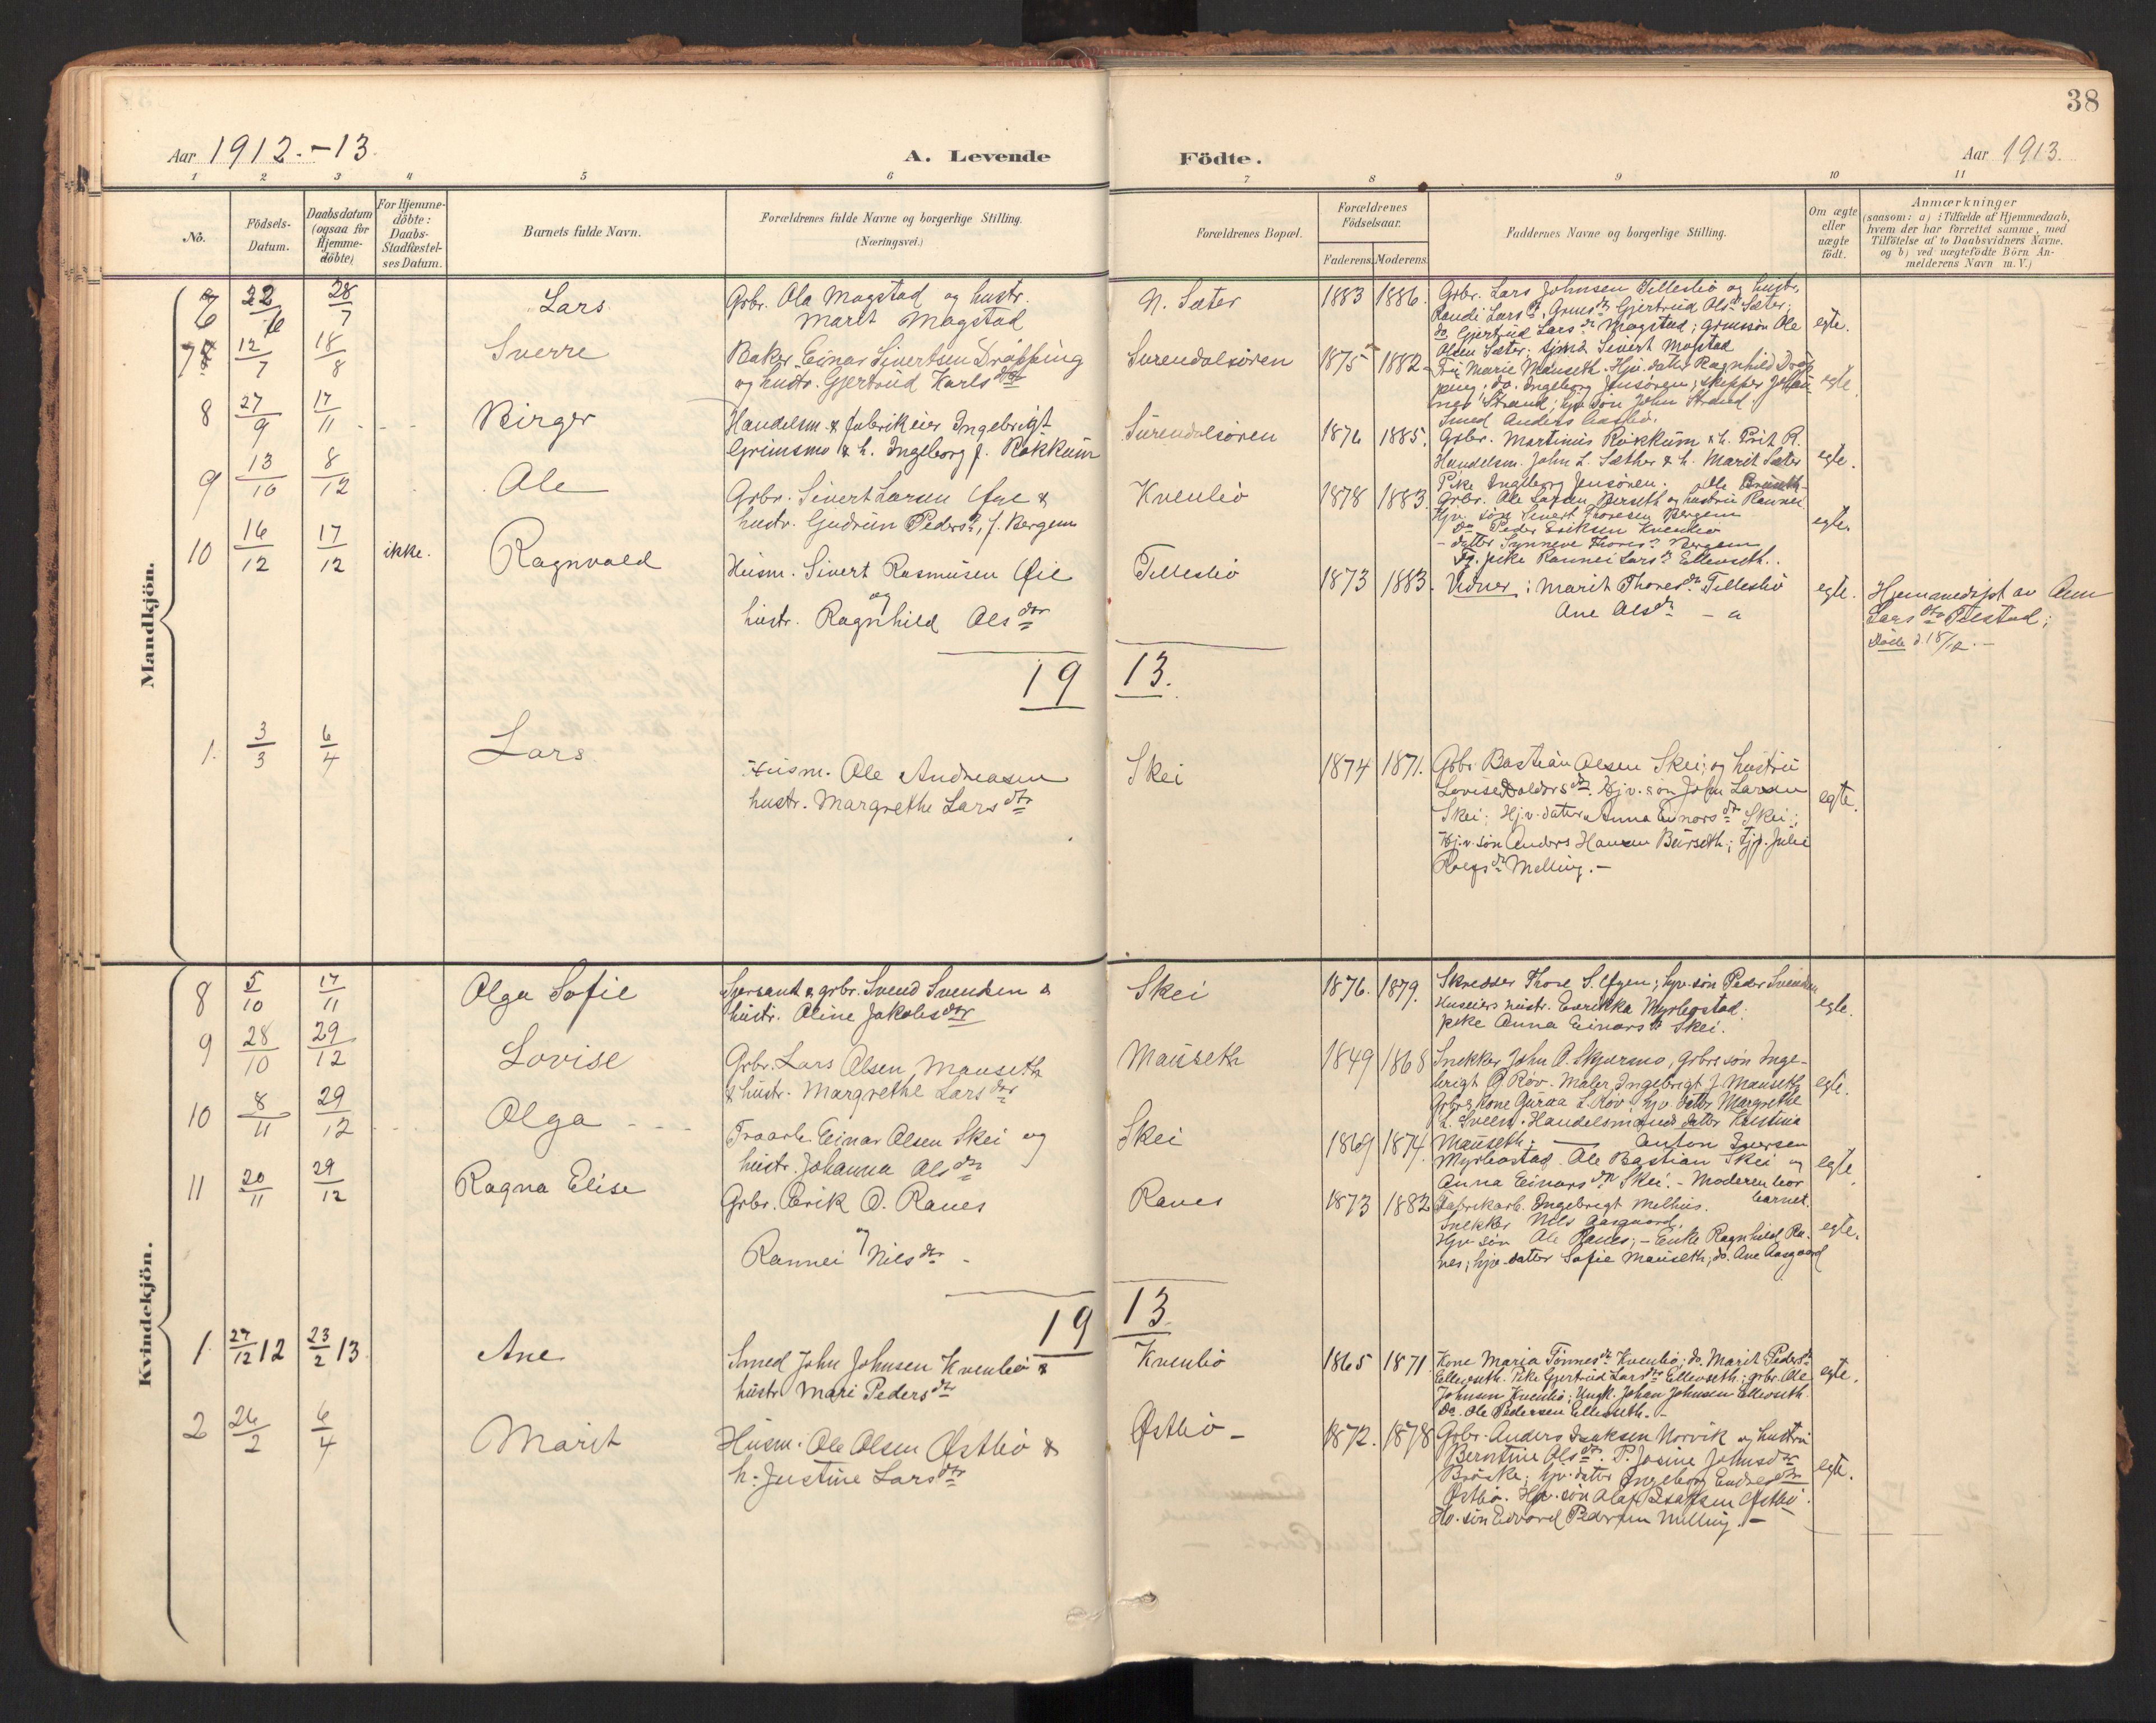 38
Aar 1912.-13.
A. Levende
Födte.
Aar 1913.
1 2 3 4 5 6 7 8 9 10 11
No.
Födsels-
Datum.
Daabsdatum
(ogsaa for
Hjemme-
döbte)
For Hjemme-
döbte:
Daabs-
Stadfæstel-
ses Datum.
Barnets fulde Navn.
Forældrenes fulde Navne og borgerlige Stilling.
(Næringsvei.)
Forældrenes Bopæl.
Forældrenes
Födselsaar.
Faderens.
Moderens.
Faddernes Navne og borgerlige Stilling.
Om ægte
eller
uægte
födt.
Anmærkninger
(saasom: a) i Tilfælde af Hjemmedaab,
hvem der har forrettet samme, med
Tilföielse af to Daabsvidners Navne.
og b) ved uægtefödte Börn An-
melderens Navn m. V.)
Mandkjön.
6 22/6 28/7 Lars
Grbr. Ola Magstad og hustr.
Marit Magstad
N. Sæter 1883 1886.
Grbr. Lars Johnsen Tellesbö og hustr.
Randi Larsdr. Gjertrud Olsdr Sæter;
do Gjertrud Larsdr Magstad; grmssön Ole
Olsen Sæter; Sivert Magstad
egte.
7 12/7 18/8 Sverre
Baker Einar Sivertsen Dröpping
og hustr. Gjertrud Karlsdtr
Surendalsören 1875 1882
Fru Marie Mauseth. Hjv. dater Ragnhild Dröp
ping; do. Ingeborg Jensören; skipper Johan
nes Strand; hjv. sön John Strand.
Smed Anders
egte
8 27/9 17/11 Birger
Handelsm. & fabrikeier Ingebrigt
Grimsmo & h. Ingeborg f. Rökkum
Surendalsören 1876 1885.
Grbr. Martinus Rökkum & h. Brit R.
Handelsm. John L. Sæther & h. Marit Sæter
Pike Ingeborg Jensören. Ole Bruseth
egte.
9 13/10 8/12 Ole
Grbr. Sivert Larsen Öye &
hustr. Gudrun Pedersd., f. Bergem
Kvenbö 1878 1883.
Grbr. Ole Larsen Berseth og hustru Rannei
Hjv. sön Sivert Thoresen Bergem
Do Peder Eriksen Kvenbö
- datter Synneve Thoresd. Bergem
Tj. pike Rannei Larsdr Ellevseth.
egte.
10 16/12 17/12 ikke. Ragnvald
Husm. Sivert Rasmusen Öie
og
hustr. Ragnhild Olsdtr
Tellesbö 1873 1883.
Vidner: Marit Thoresdr Tellesbö
Ane Olsdr - "
egte.
Hjemmedöpt av Ane
Larsdtr Telstad;
Döde d 18/12.-
19 13.
1. 3/3 6/4 Lars
Husm. Ole Andreasen
hustr. Margrethe Larsdtr
Skei 1874 1871.
Grbr. Bastian Olsen Skei; og hustru
Lovise Haldorsdtr. Hjv. sön John Larsen
Skei; Hj.v. dater Anna Einarsdtr Skei;
Hj.v. sön Anders Hansen Bürseth; tjp. Julie
Rolfsdr Melling.-
egte.
Kvindekjön.
8 5/10 17/11 Olga Sofie
Sersant & grbr. Svend Svendsen &
hustr. Oline Jakobsdtr
Skei 1876. 1879.
Skredder Thore S. Öyen; hjv. sön Peder Svendsen
Huseiers hustr. Enrikka Myrbostad.
pike Anna Einarsdr Skei.
egte.
9 28/10 29/12 Lovise
Grbr. Lars Olsen Mauseth
& hustr. Margrethe Larsdtr
Mauseth 1849 1868
Snekker John O. Skjermo, grbrs sön Inge-
brigt O Röv. Maler Ingebrigt J. Mauseth
Grbrs kone Guroa L. Röv; hjv. datter Margrethe
L. Sveen. Handelsmands datter Kristina
Mauseth.
egte.
10 8/11 29/12 Olga
Traarb. Einar Olsen Skei og
hustr. Johanna Olsdtr
Skei 1869 1874.
Anton Iversen
Myrbostad. Ole Bastian Skei og
Anna Einarsdtr Skei. - Moderen bar
barnet.
egte.
11 20/11 29/12 Ragna Elise
Grbr. Erik O. Ranes
og
Rannei Nilsdr
Ranes 1873 1882
Fabrikarb. Ingebrigt Melhus.
Snekker Nils Aasgaard.
Hjv sön Ole Ranes; - Enke Ragnhild Ra-
nes; hjv. datter Sofie Mauseth; do. Ane Aasgaard
egte.
19 13.
1. 27/12 12 23/2 13 Ane
Smed John Johnsen Kvenbö &
hustr. Mari Pedersdtr
Kvenbö 1865 1871
Kone Maria Tönnesdr Kvenbö; do. Marit Pedersdr
Ellevseth. Pike Gjertrud Larsdtr Ellevseth; grbr. Ole
Johnsen Kvenbö; Ungk. Johan Johnsen Ellevseth.
Do. Ole Pedersen Ellevseth.-
egte.
2 26/2 6/4 Marit
Husm. Ole Olsen Østbö &
h. Justine Larsdtr
Østbö - 1872. 1878
Grbr. Anders Isaksen Norvik og hustru
Berntine Olsdtr. P. Josine Johnsdtr
Bröske; hjv. dater Ingeborg Endresdtr
Østbö. Hjv. sön Olaf Isaksen Østbö.
Hv. sön Edvard Pedersen Melling.-
egte.